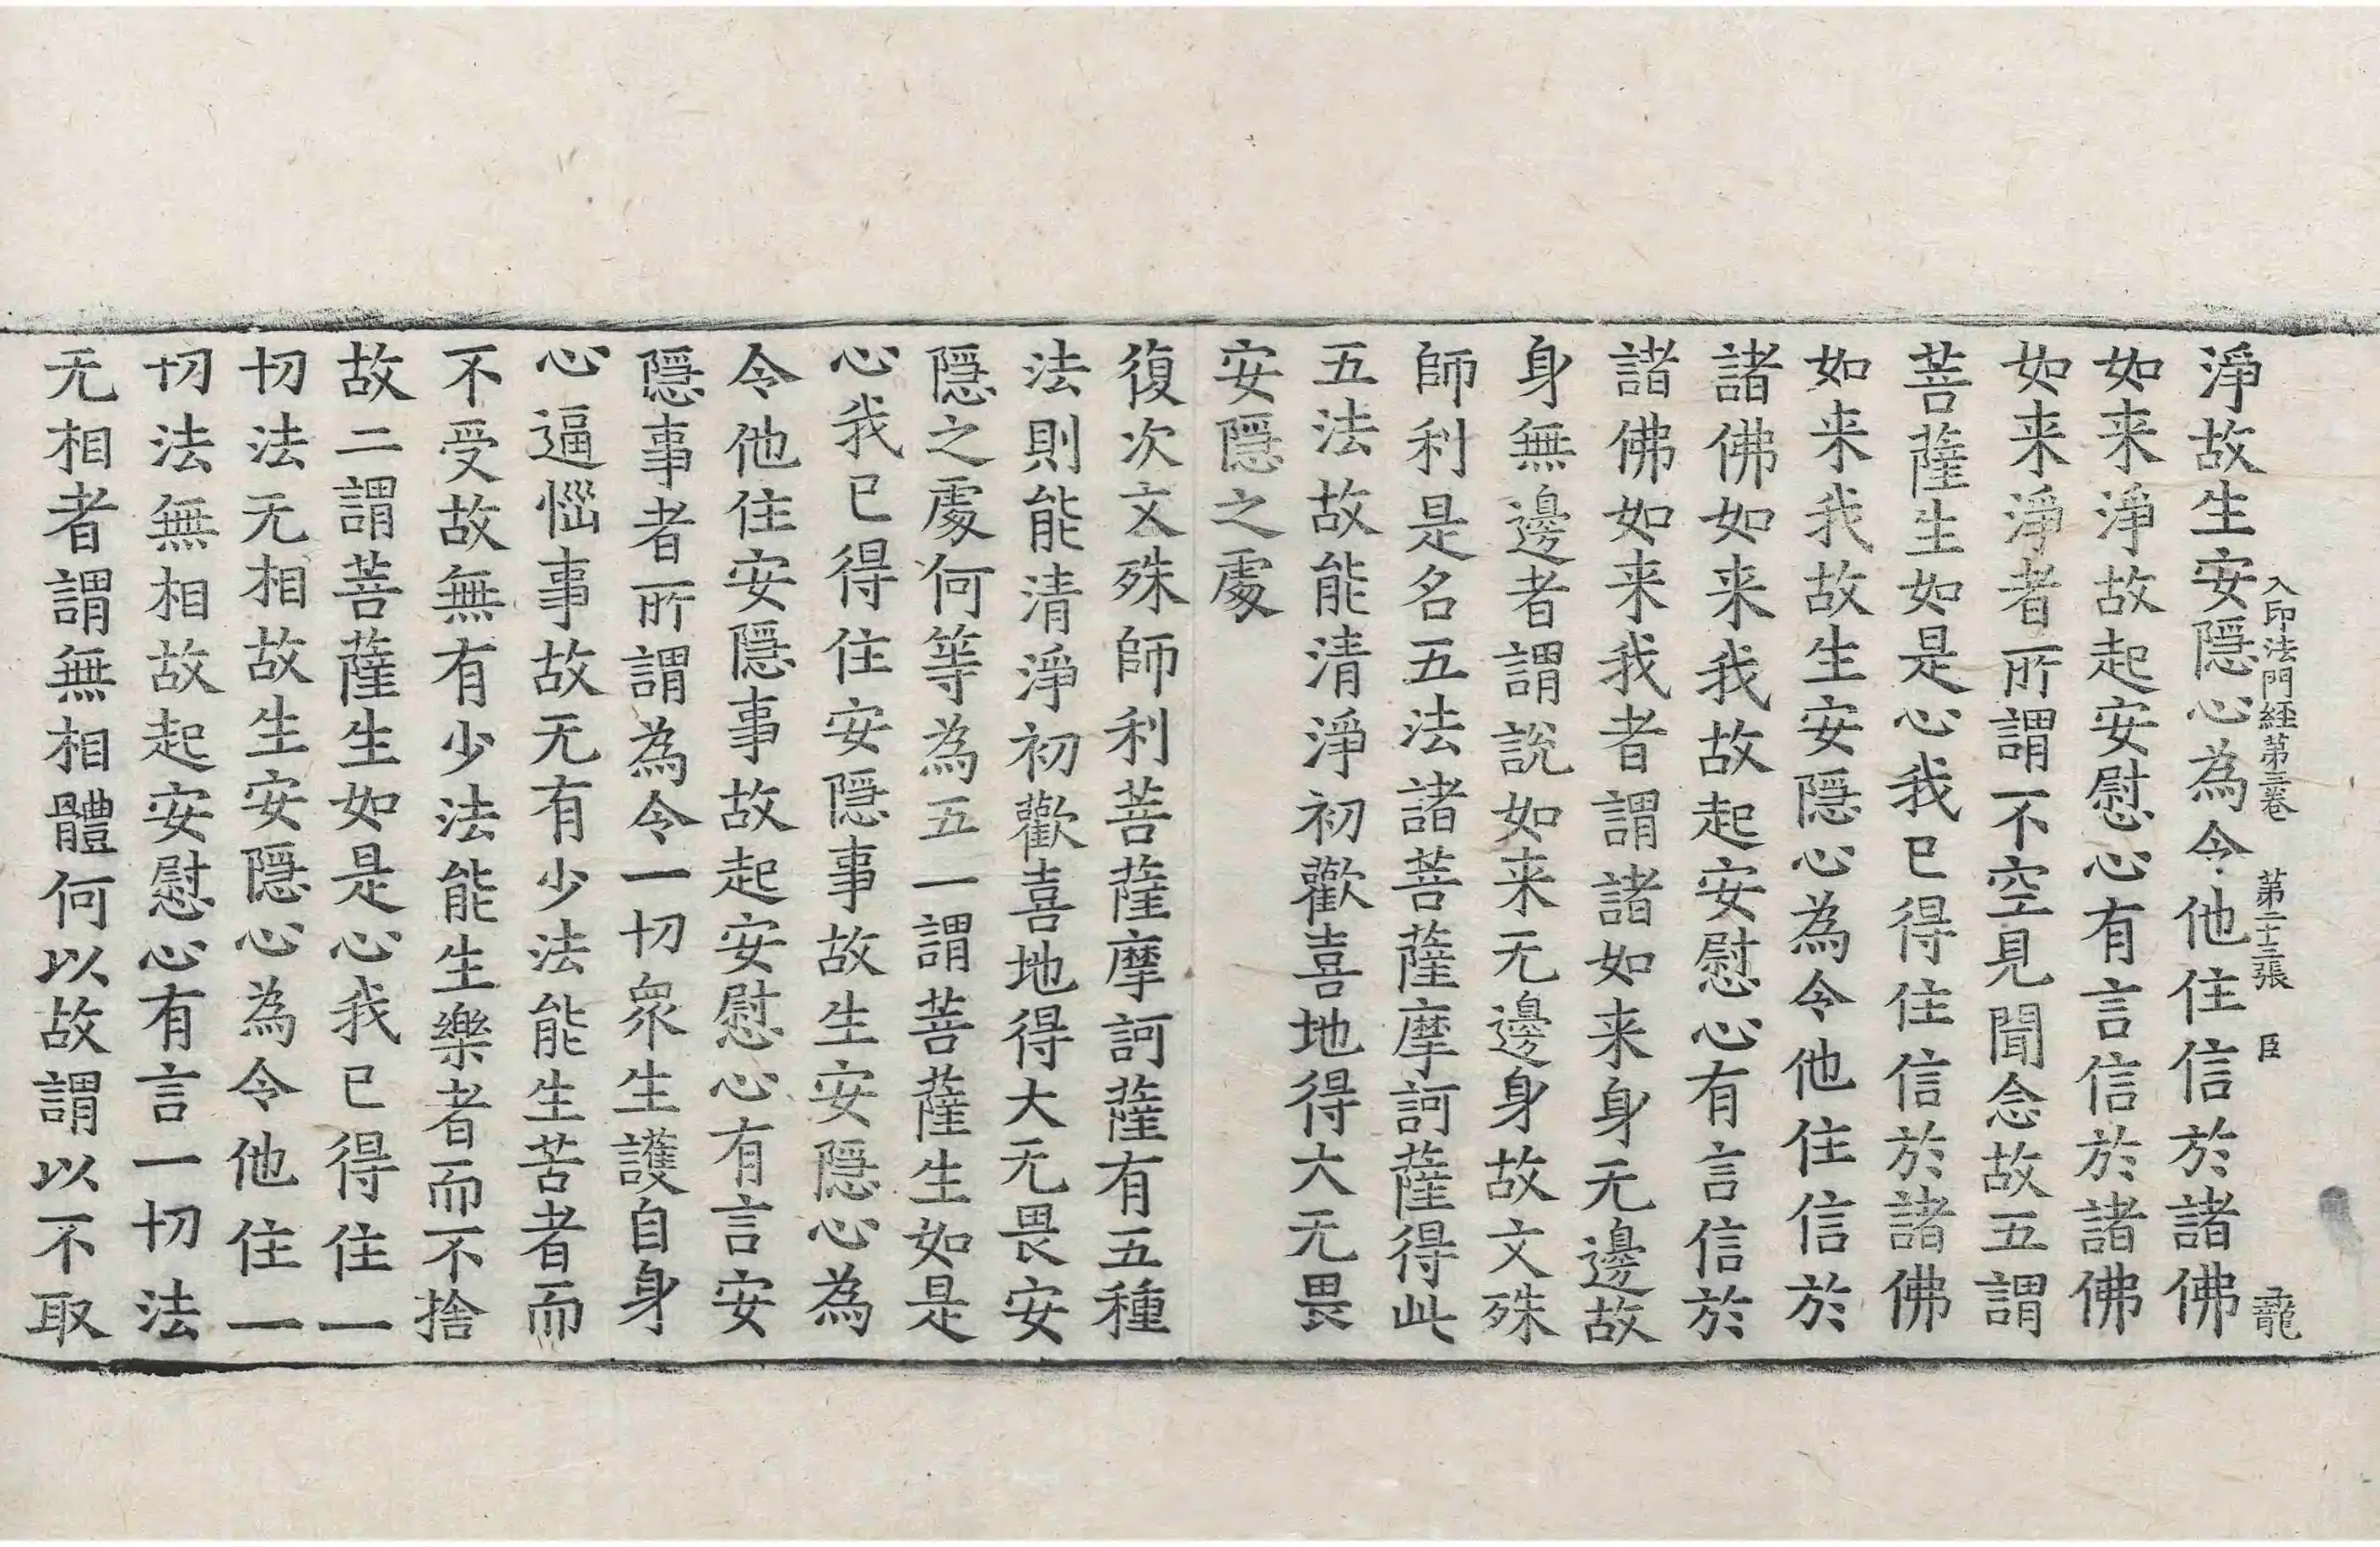 入印法門経第三巻　第二十三張　臣　龍
淨故生安隱心為令他住信於諸佛
如来淨故起安慰心有言信於諸佛
如来淨者所謂不空見聞念故五謂
菩薩生如是心我已得住信於諸佛
如来我故生安隱心為令他住信於
諸佛如来我故起安慰心有言信於
諸佛如来我者謂諸如来身无邊故
身無邊者謂說如来无邊身故文殊
師利是名五法諸菩薩摩訶薩得此
五法故能清淨初歡喜地得大无畏
安隱之處
復次文殊師利菩薩摩訶薩有五種
法則能清淨初歡喜地得大无畏安
隱之處何等為五一謂菩薩生如是
心我已得住安隱事故生安隱心為
令他住安隱事故起安慰心有言安
隱事者所謂為令一切衆生護自身
心逼惱事故无有少法能生苦者而
不受故無有少法能生樂者而不捨
故二謂菩薩生如是心我已得住一
切法无相故生安隱心為令他住一
切法無相故起安慰心有言一切法
无相者謂無相體何以故謂以不取